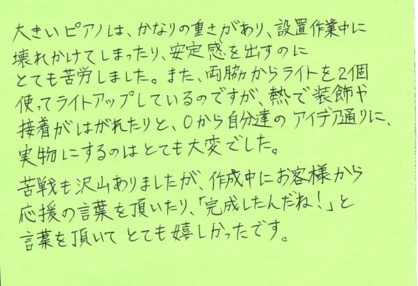 大きいピアノは、かなりの重さがあり、設置作業中に
壊れかけてしまったり、安定感を出すのに
とても苦労しました。また、両脇からライトを2個
使ってライトアップしているのですが、熱で装飾や
接着がはがれたりと、0から自分達のアイデア通りに、
実物にするのはとても大変でした。
苦戦も沢山ありましたが、作成中にお客様から
応援の言葉を頂いたり、「完成したんだね!」と
言葉を頂いてとても嬉しかったです。